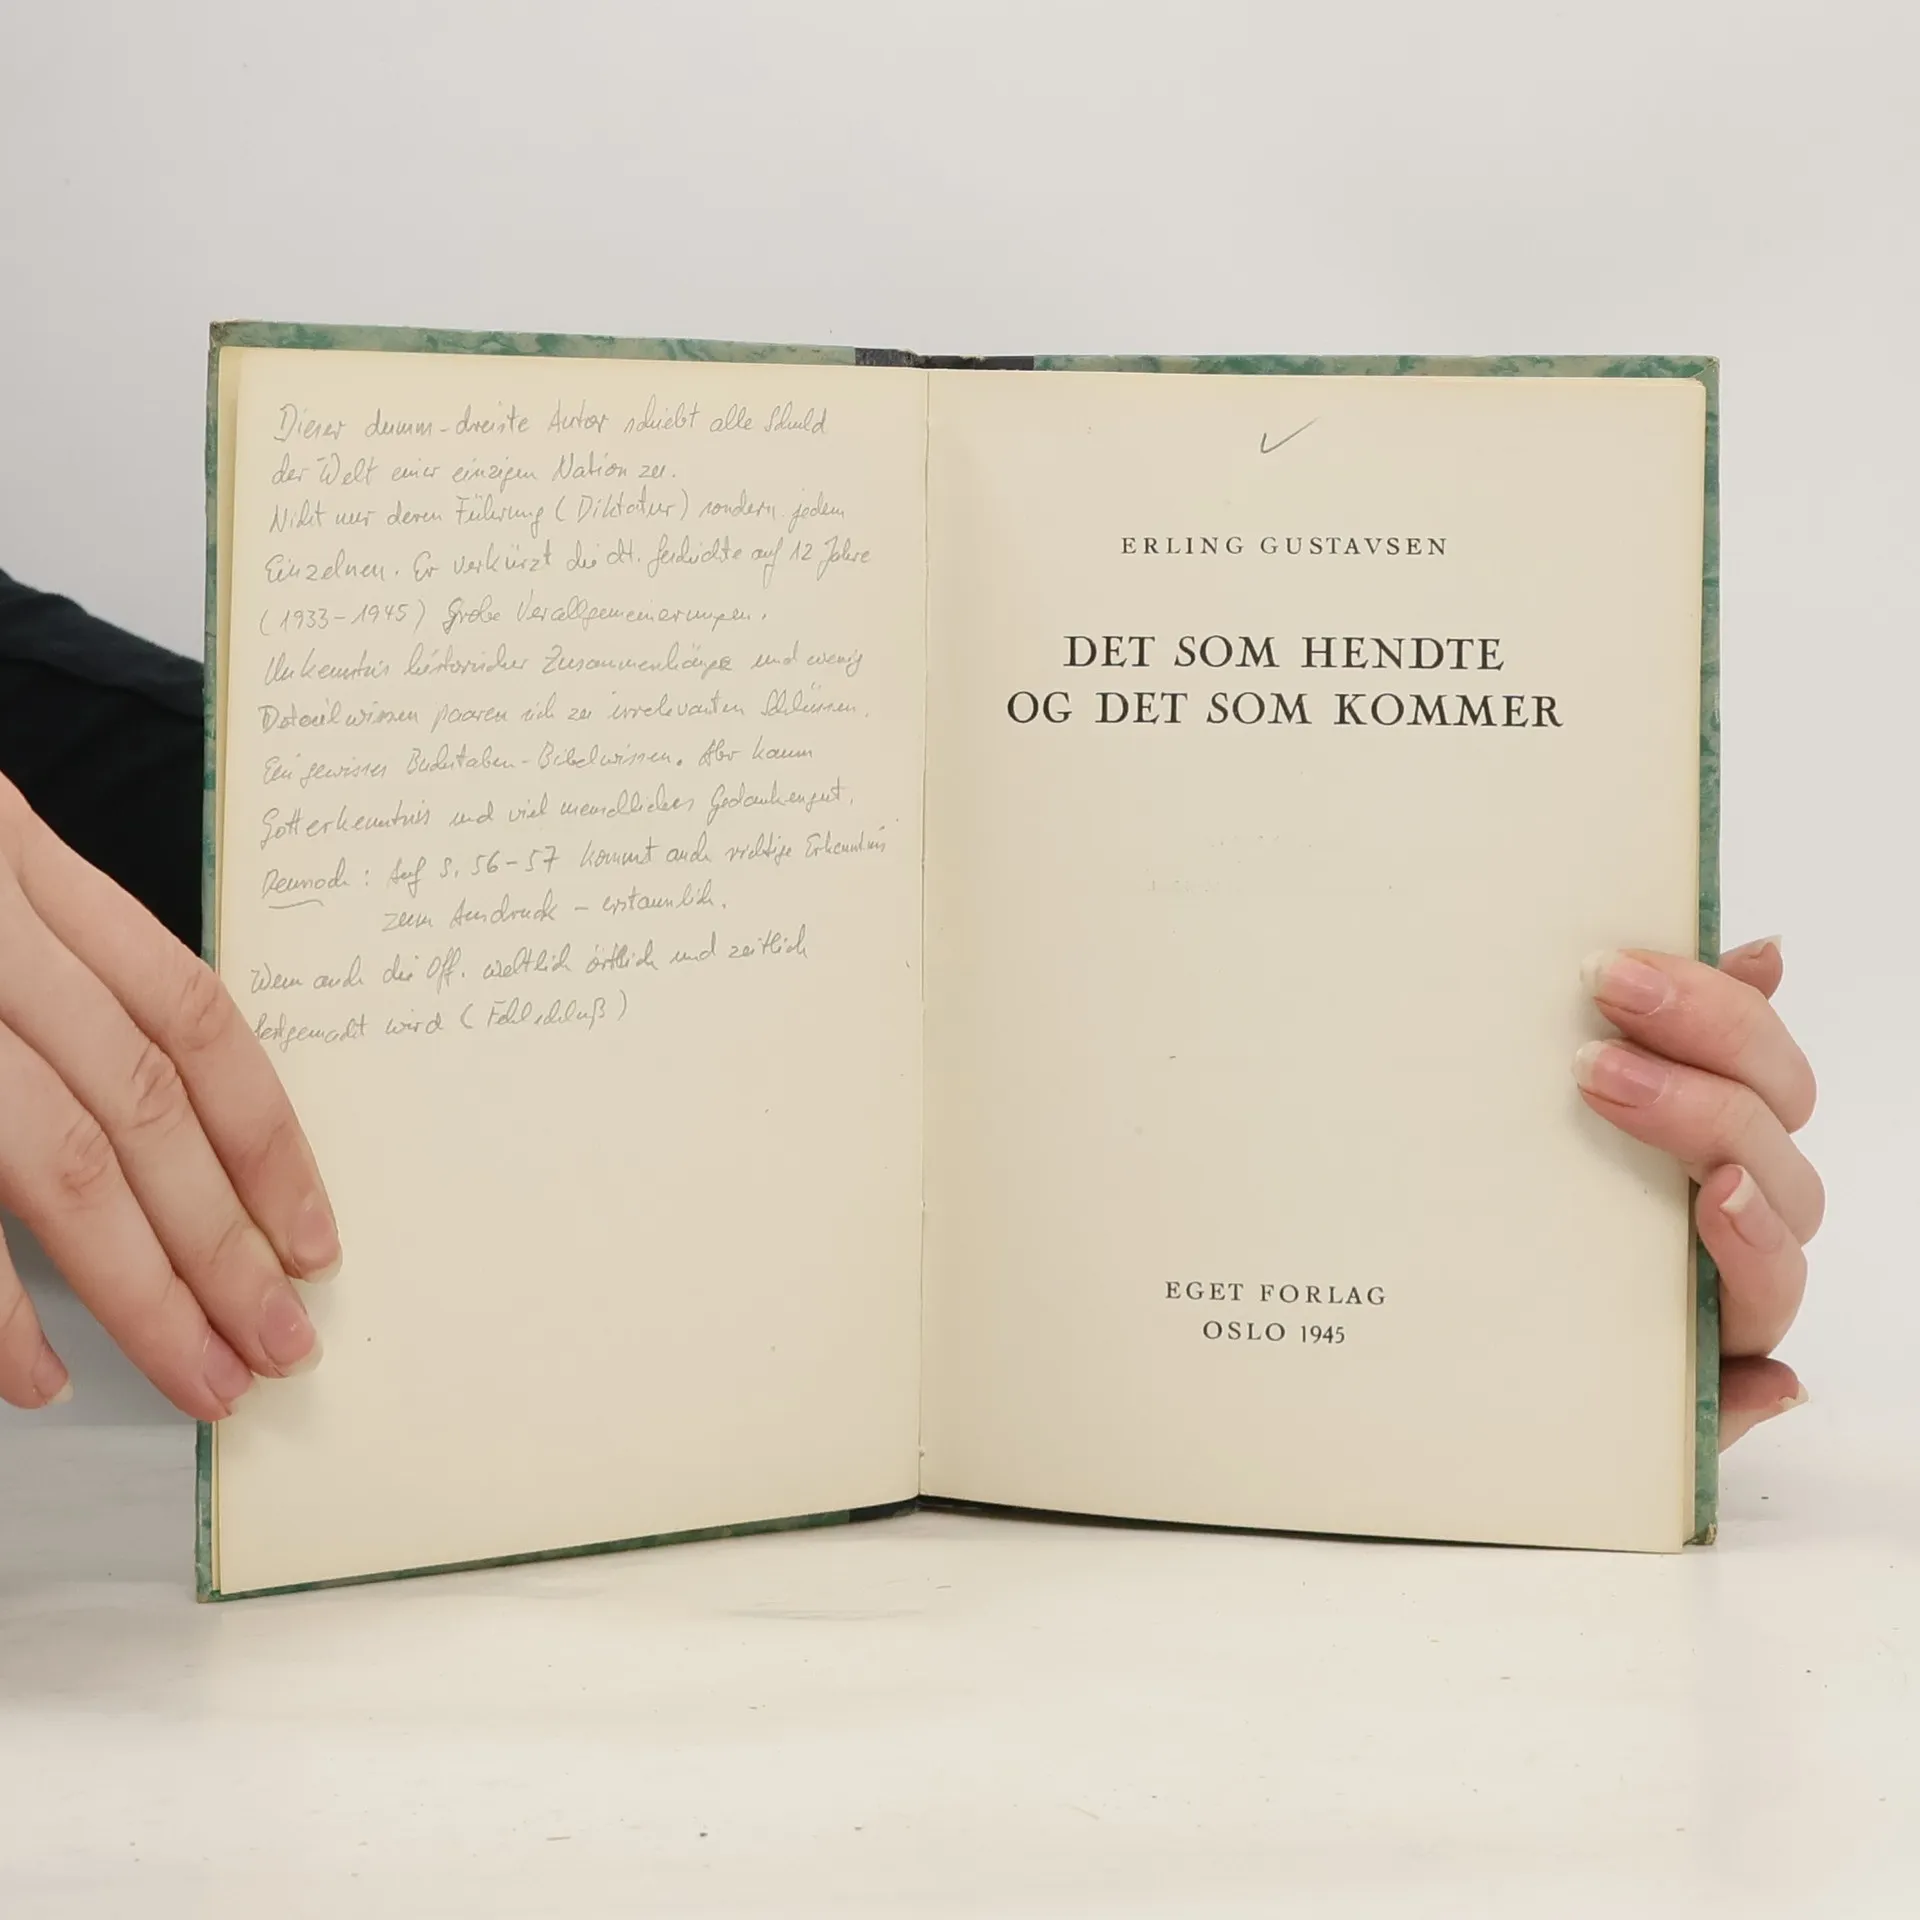 Dieser dumm-dreiste Autor schiebt alle Schuld
der Welt einer einzigen Nation zu.
Nicht nur deren Führung (Diktatur) sondern jedem
Einzelnen. Er verkürzt die dt. Geschichte auf 12 Jahre
(1933-1945) Grobe Verallgemeinerungen.
Unkenntnis historischer Zusammenhänge und wenig
Detailwissen paaren sich zu irrelevanten Schlüssen.
Ein gewisses Buchstaben-Bibelwissen. Aber kaum
Gotterkenntnis und viel menschliches Gedankengut.
Dennoch: Auf S. 56-57 kommt auch richtige Erkenntnis
zum Ausdruck - erstaunlich.
Wenn auch die Off. weltlich örtlich und zeitlich
festgemacht wird (Fehlschluß)
ERLING GUSTAVSEN
DET SOM HENDTE
OG DET SOM KOMMER
EGET FORLAG
OSLO 1945